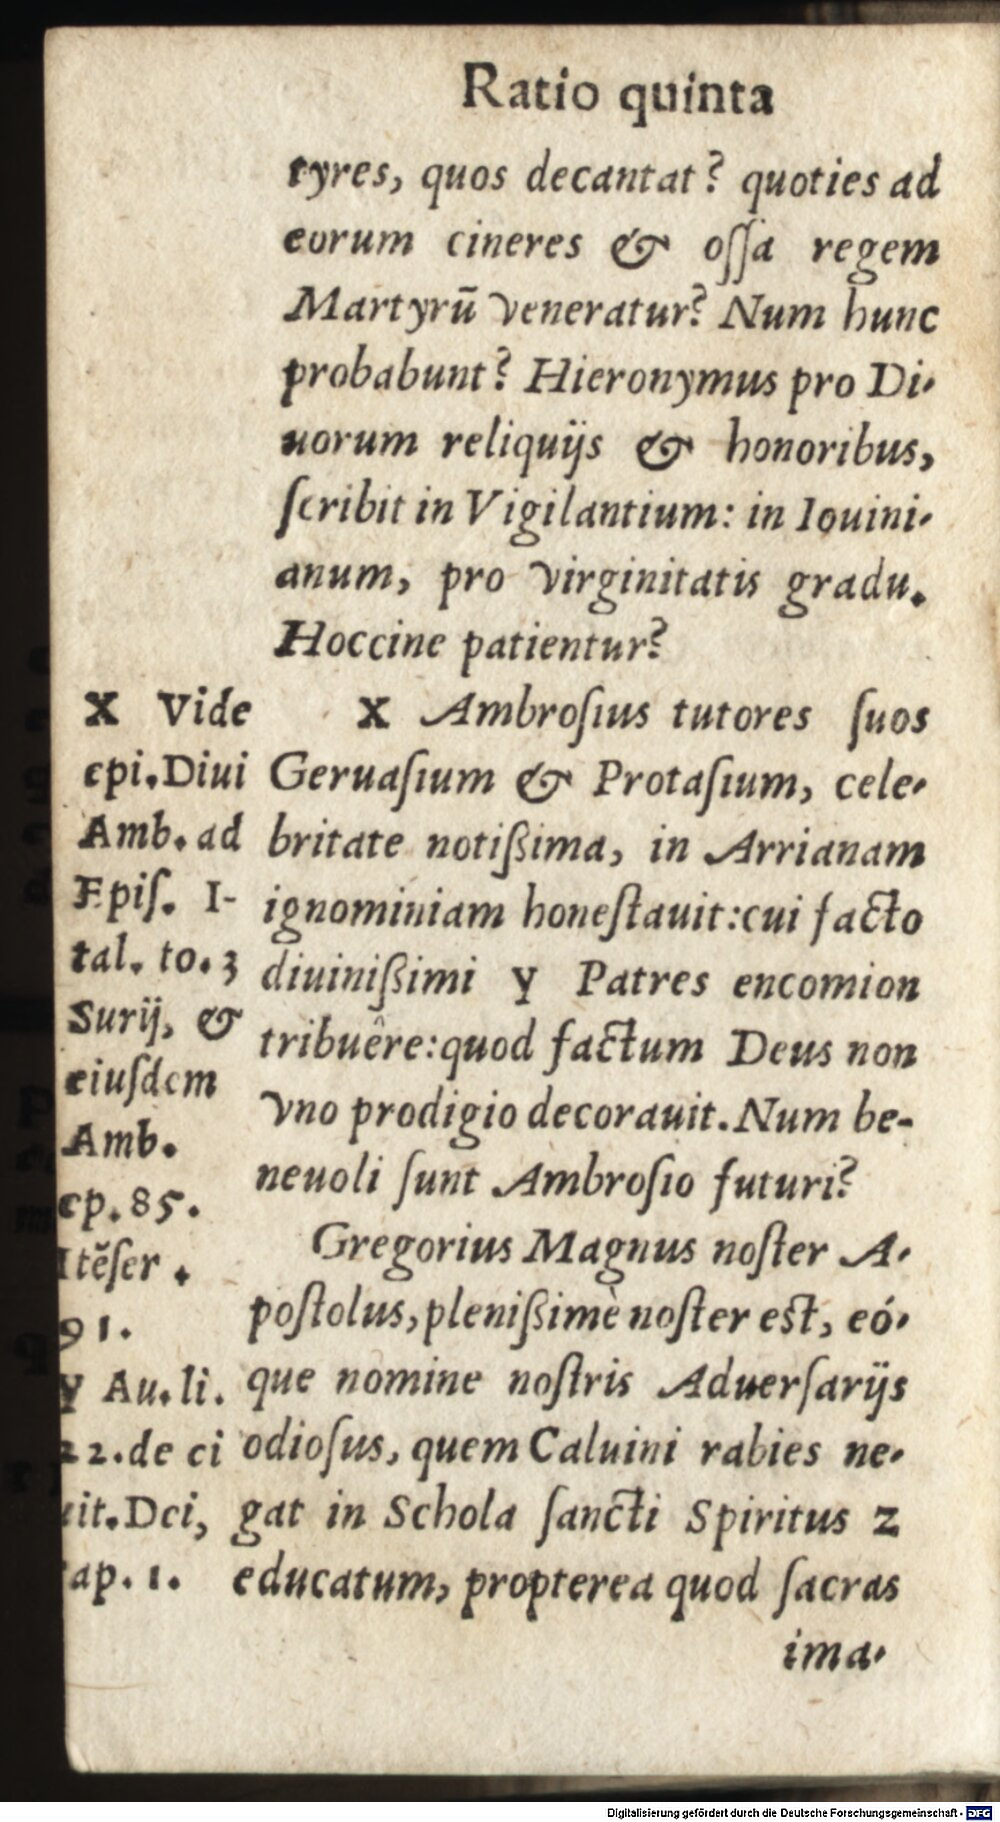 Ratio quinta
tyres, quos decantat? quoties ad
eorum cineres & oſſa regem
Martyrū veneratur? Num hunc
probabunt? Hieronymus pro Di-
uorum reliquijs & honoribus,
ſcribit in Vigilantium: in Iouini-
anum, pro virginitatis gradu.
Hoccine patientur?
X Ambroſius tutores ſuos
Geruaſium & Protaſium, cele-
britate notißima, in Arrianam
ignominiam honeſtauit: cui facto
diuinißimi y Patres encomion
tribuêre: quod factum Deus non
vno prodigio decorauit. Num be-
neuoli ſunt Ambroſio futuri?
Gregorius Magnus noſter A-
poſtolus, plenißimè noſter est, eó-
que nomine noſtris Aduerſarijs
odioſus, quem Caluini rabies ne-
gat in Schola ſancti Spiritus z
educatum, propterea quod ſacras
ima-
X Vide
epi. Diui
Amb. ad
Epiſ. I-
tal. to. 3
Surij, &
eiuſdem
Amb.
ep. 85.
Itēſer.
91.
y Au. li.
22. de ci
uit. Dei,
cap. 1.
Digitalisierung gefördert durch die Deutsche Forschungsgemeinschaft - DFG